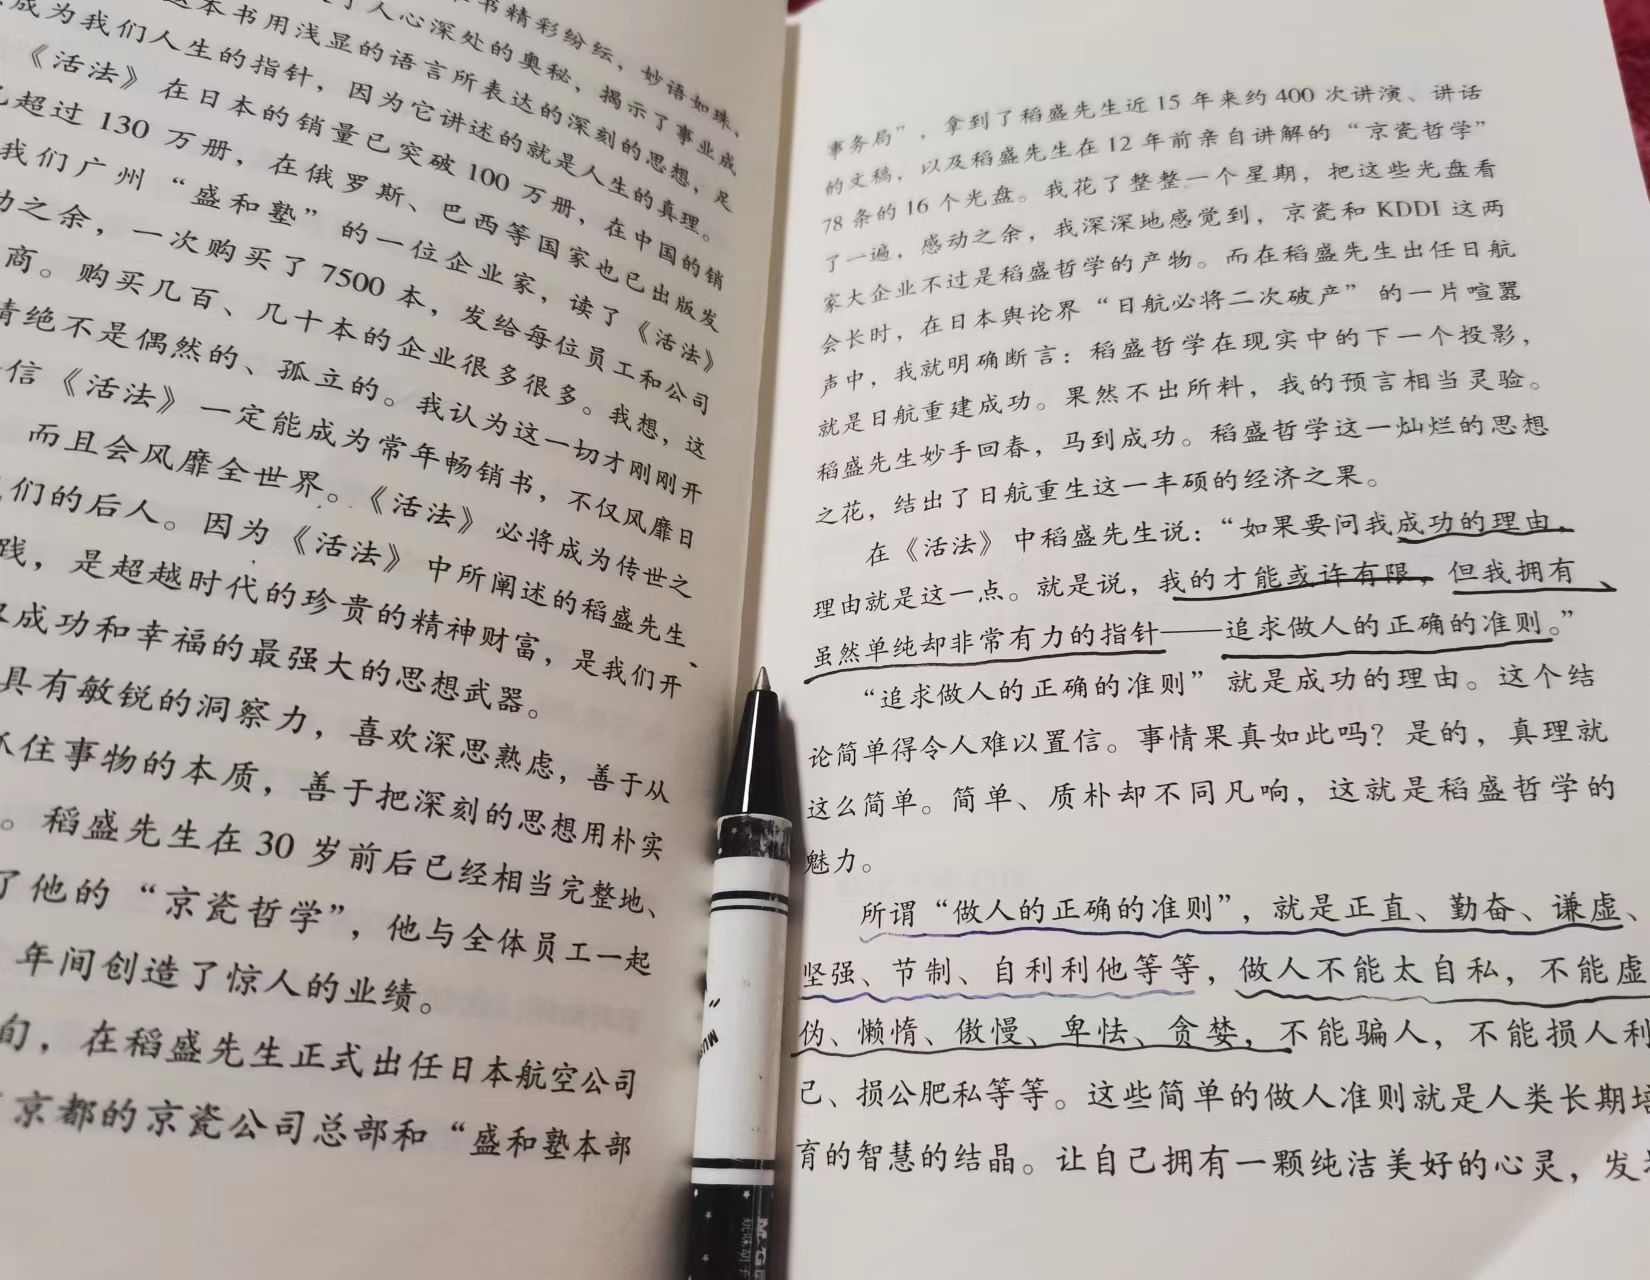 书精彩纷纭，妙语如珠，
人心深处的奥秘，揭示了事业成
这本书用浅显的语言所表达的深刻的思想，足
成为我们人生的指针，因为它讲述的就是人生的真理。
《活法》在日本的销量已突破100万册，在中国的销
超过130万册，在俄罗斯、巴西等国家也已出版发
我们广州“盛和塾”的一位企业家，读了《活法》
动之余，一次购买了7500本，发给每位员工和公司
商。购买几百、几十本的企业很多很多。我想，这
情绝不是偶然的、孤立的。我认为这一切才刚刚开
信《活法》一定能成为常年畅销书，不仅风靡日
而且会风靡全世界。《活法》必将成为传世之
们的后人。因为《活法》中所阐述的稻盛先生
践，是超越时代的珍贵的精神财富，是我们开
成功和幸福的最强大的思想武器。
具有敏锐的洞察力，喜欢深思熟虑，善于从
抓住事物的本质，善于把深刻的思想用朴实
。稻盛先生在30岁前后已经相当完整地、
了他的“京瓷哲学”，他与全体员工一起
年间创造了惊人的业绩。
旬，在稻盛先生正式出任日本航空公司
京都的京瓷公司总部和“盛和塾本部
事务局”，拿到了稻盛先生近15年来约400次讲演、讲话
的文稿，以及稻盛先生在12年前亲自讲解的“京瓷哲学”
78条的16个光盘。我花了整整一个星期，把这些光盘看
了一遍，感动之余，我深深地感觉到，京瓷和KDDI这两
家大企业不过是稻盛哲学的产物。而在稻盛先生出任日航
会长时，在日本舆论界“日航必将二次破产”的一片喧嚣
声中，我就明确断言：稻盛哲学在现实中的下一个投影，
就是日航重建成功。果然不出所料，我的预言相当灵验。
稻盛先生妙手回春，马到成功。稻盛哲学这一灿烂的思想
之花，结出了日航重生这一丰硕的经济之果。
在《活法》中稻盛先生说：“如果要问我成功的理由，
理由就是这一点。就是说，我的才能或许有限，但我拥有
虽然单纯却非常有力的指针——追求做人的正确的准则。”
“追求做人的正确的准则”就是成功的理由。这个结
论简单得令人难以置信。事情果真如此吗？是的，真理就
这么简单。简单、质朴却不同凡响，这就是稻盛哲学的
魅力。
所谓“做人的正确的准则”，就是正直、勤奋、谦虚、
坚强、节制、自利利他等等，做人不能太自私，不能虚
伪、懒惰、傲慢、卑怯、贪婪，不能骗人，不能损人利
己、损公肥私等等。这些简单的做人准则就是人类长期培
育的智慧的结晶。让自己拥有一颗纯洁美好的心灵，发
M&G